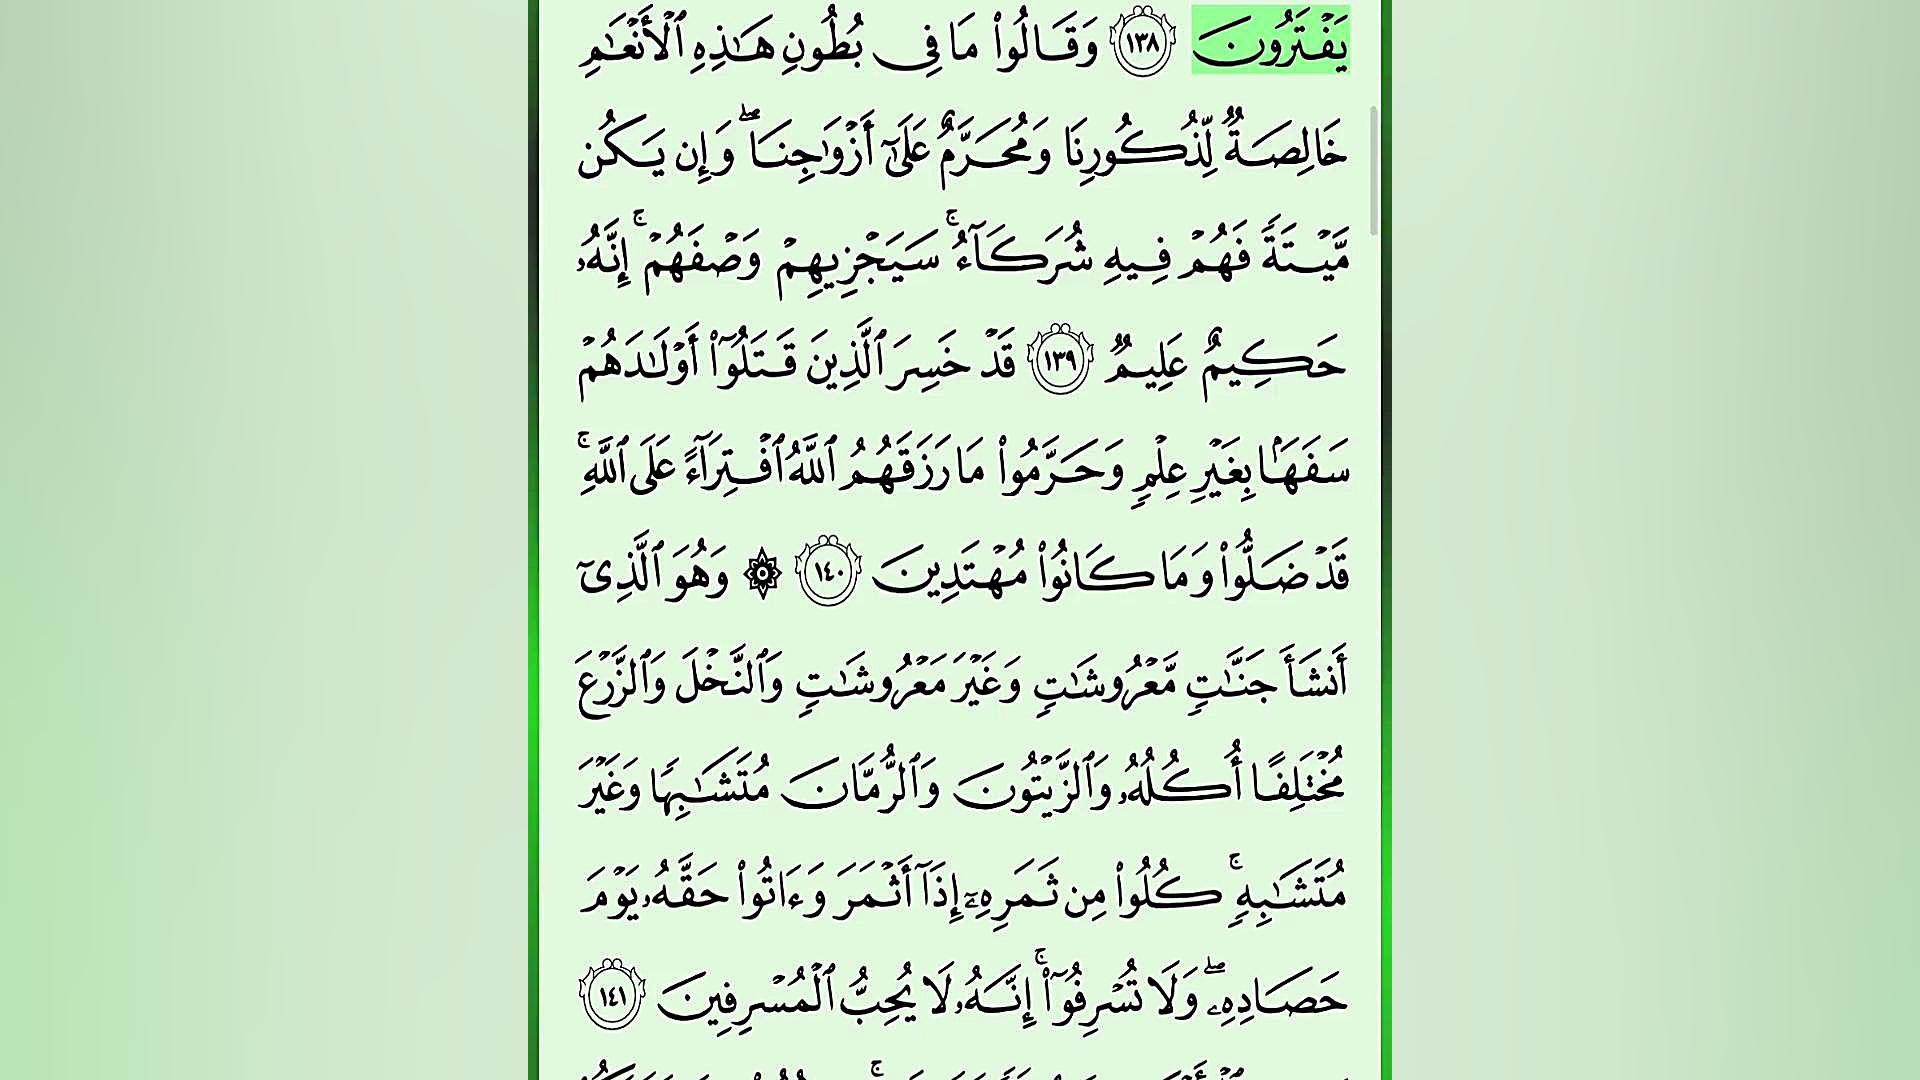 يَفْتَرُونَ ١٣٨ وَقَالُوا۟ مَا فِى بُطُونِ هَـٰذِهِ ٱلْأَنْعَـٰمِ
خَالِصَةٌ لِّذُكُورِنَا وَمُحَرَّمٌ عَلَىٰٓ أَزْوَٰجِنَا ۖ وَإِن يَكُن
مَّيْتَةً فَهُمْ فِيهِ شُرَكَآءُ ۚ سَيَجْزِيهِمْ وَصْفَهُمْ ۚ إِنَّهُۥ
حَكِيمٌ عَلِيمٌ ١٣٩ قَدْ خَسِرَ ٱلَّذِينَ قَتَلُوٓا۟ أَوْلَـٰدَهُمْ
سَفَهًۢا بِغَيْرِ عِلْمٍ وَحَرَّمُوا۟ مَا رَزَقَهُمُ ٱللَّهُ ٱفْتِرَآءً عَلَى ٱللَّهِ ۚ
قَدْ ضَلُّوا۟ وَمَا كَانُوا۟ مُهْتَدِينَ ١٤٠ ۞ وَهُوَ ٱلَّذِىٓ
أَنشَأَ جَنَّـٰتٍ مَّعْرُوشَـٰتٍ وَغَيْرَ مَعْرُوشَـٰتٍ وَٱلنَّخْلَ وَٱلزَّرْعَ
مُخْتَلِفًا أُكُلُهُۥ وَٱلزَّيْتُونَ وَٱلرُّمَّانَ مُتَشَـٰبِهًا وَغَيْرَ
مُتَشَـٰبِهٍ ۚ كُلُوا۟ مِن ثَمَرِهِۦٓ إِذَآ أَثْمَرَ وَءَاتُوا۟ حَقَّهُۥ يَوْمَ
حَصَادِهِۦ ۖ وَلَا تُسْرِفُوٓا۟ ۚ إِنَّهُۥ لَا يُحِبُّ ٱلْمُسْرِفِينَ ١٤١